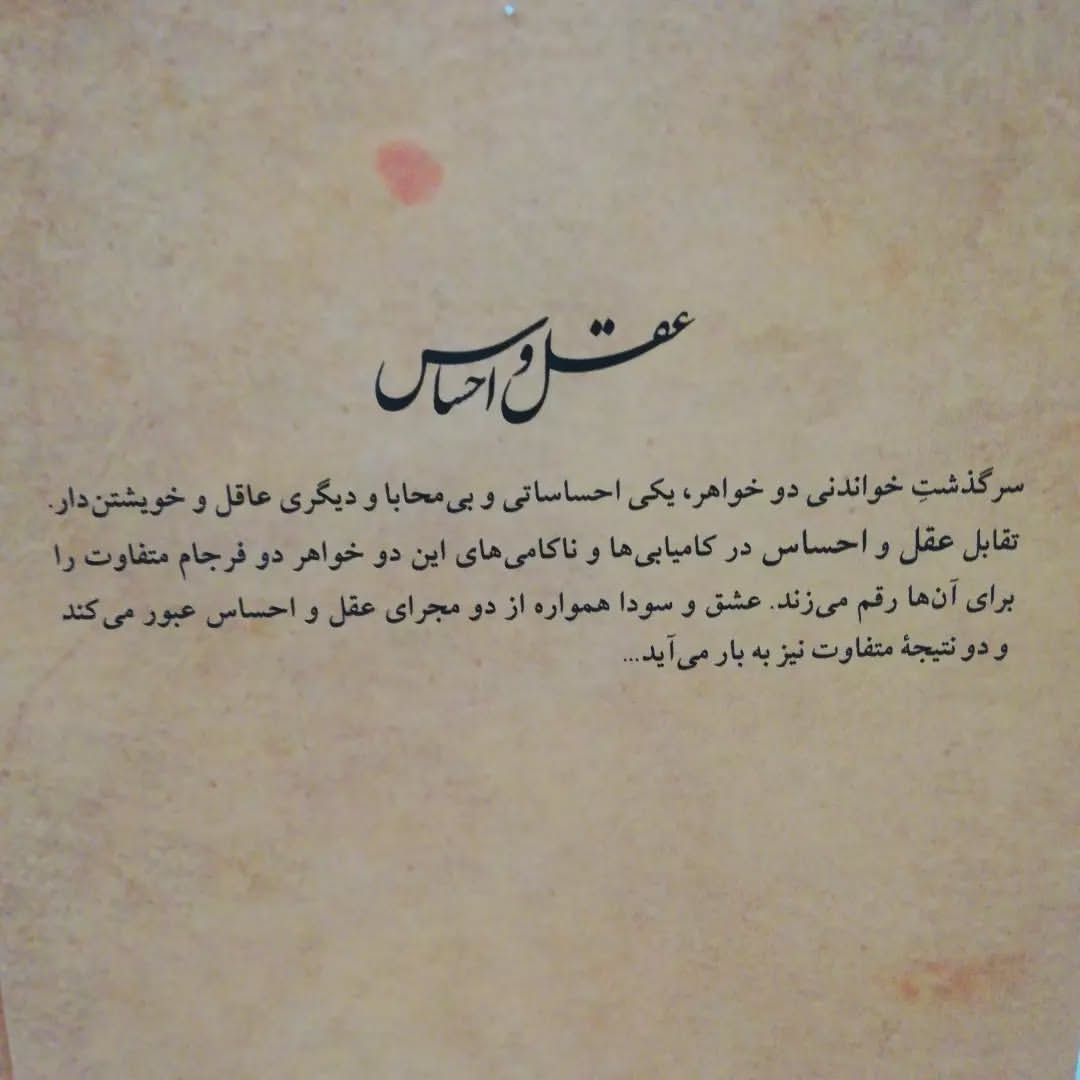 عقل و احساس
سرگذشتِ خواندنی دو خواهر، یکی احساساتی و بی‌محابا و دیگری عاقل و خویشتن‌دار.
تقابل عقل و احساس در کامیابی‌ها و ناکامی‌های این دو خواهر دو فرجام متفاوت را
برای آن‌ها رقم می‌زند. عشق و سودا همواره از دو مجرای عقل و احساس عبور می‌کند
و دو نتیجهٔ متفاوت نیز به بار می‌آید...